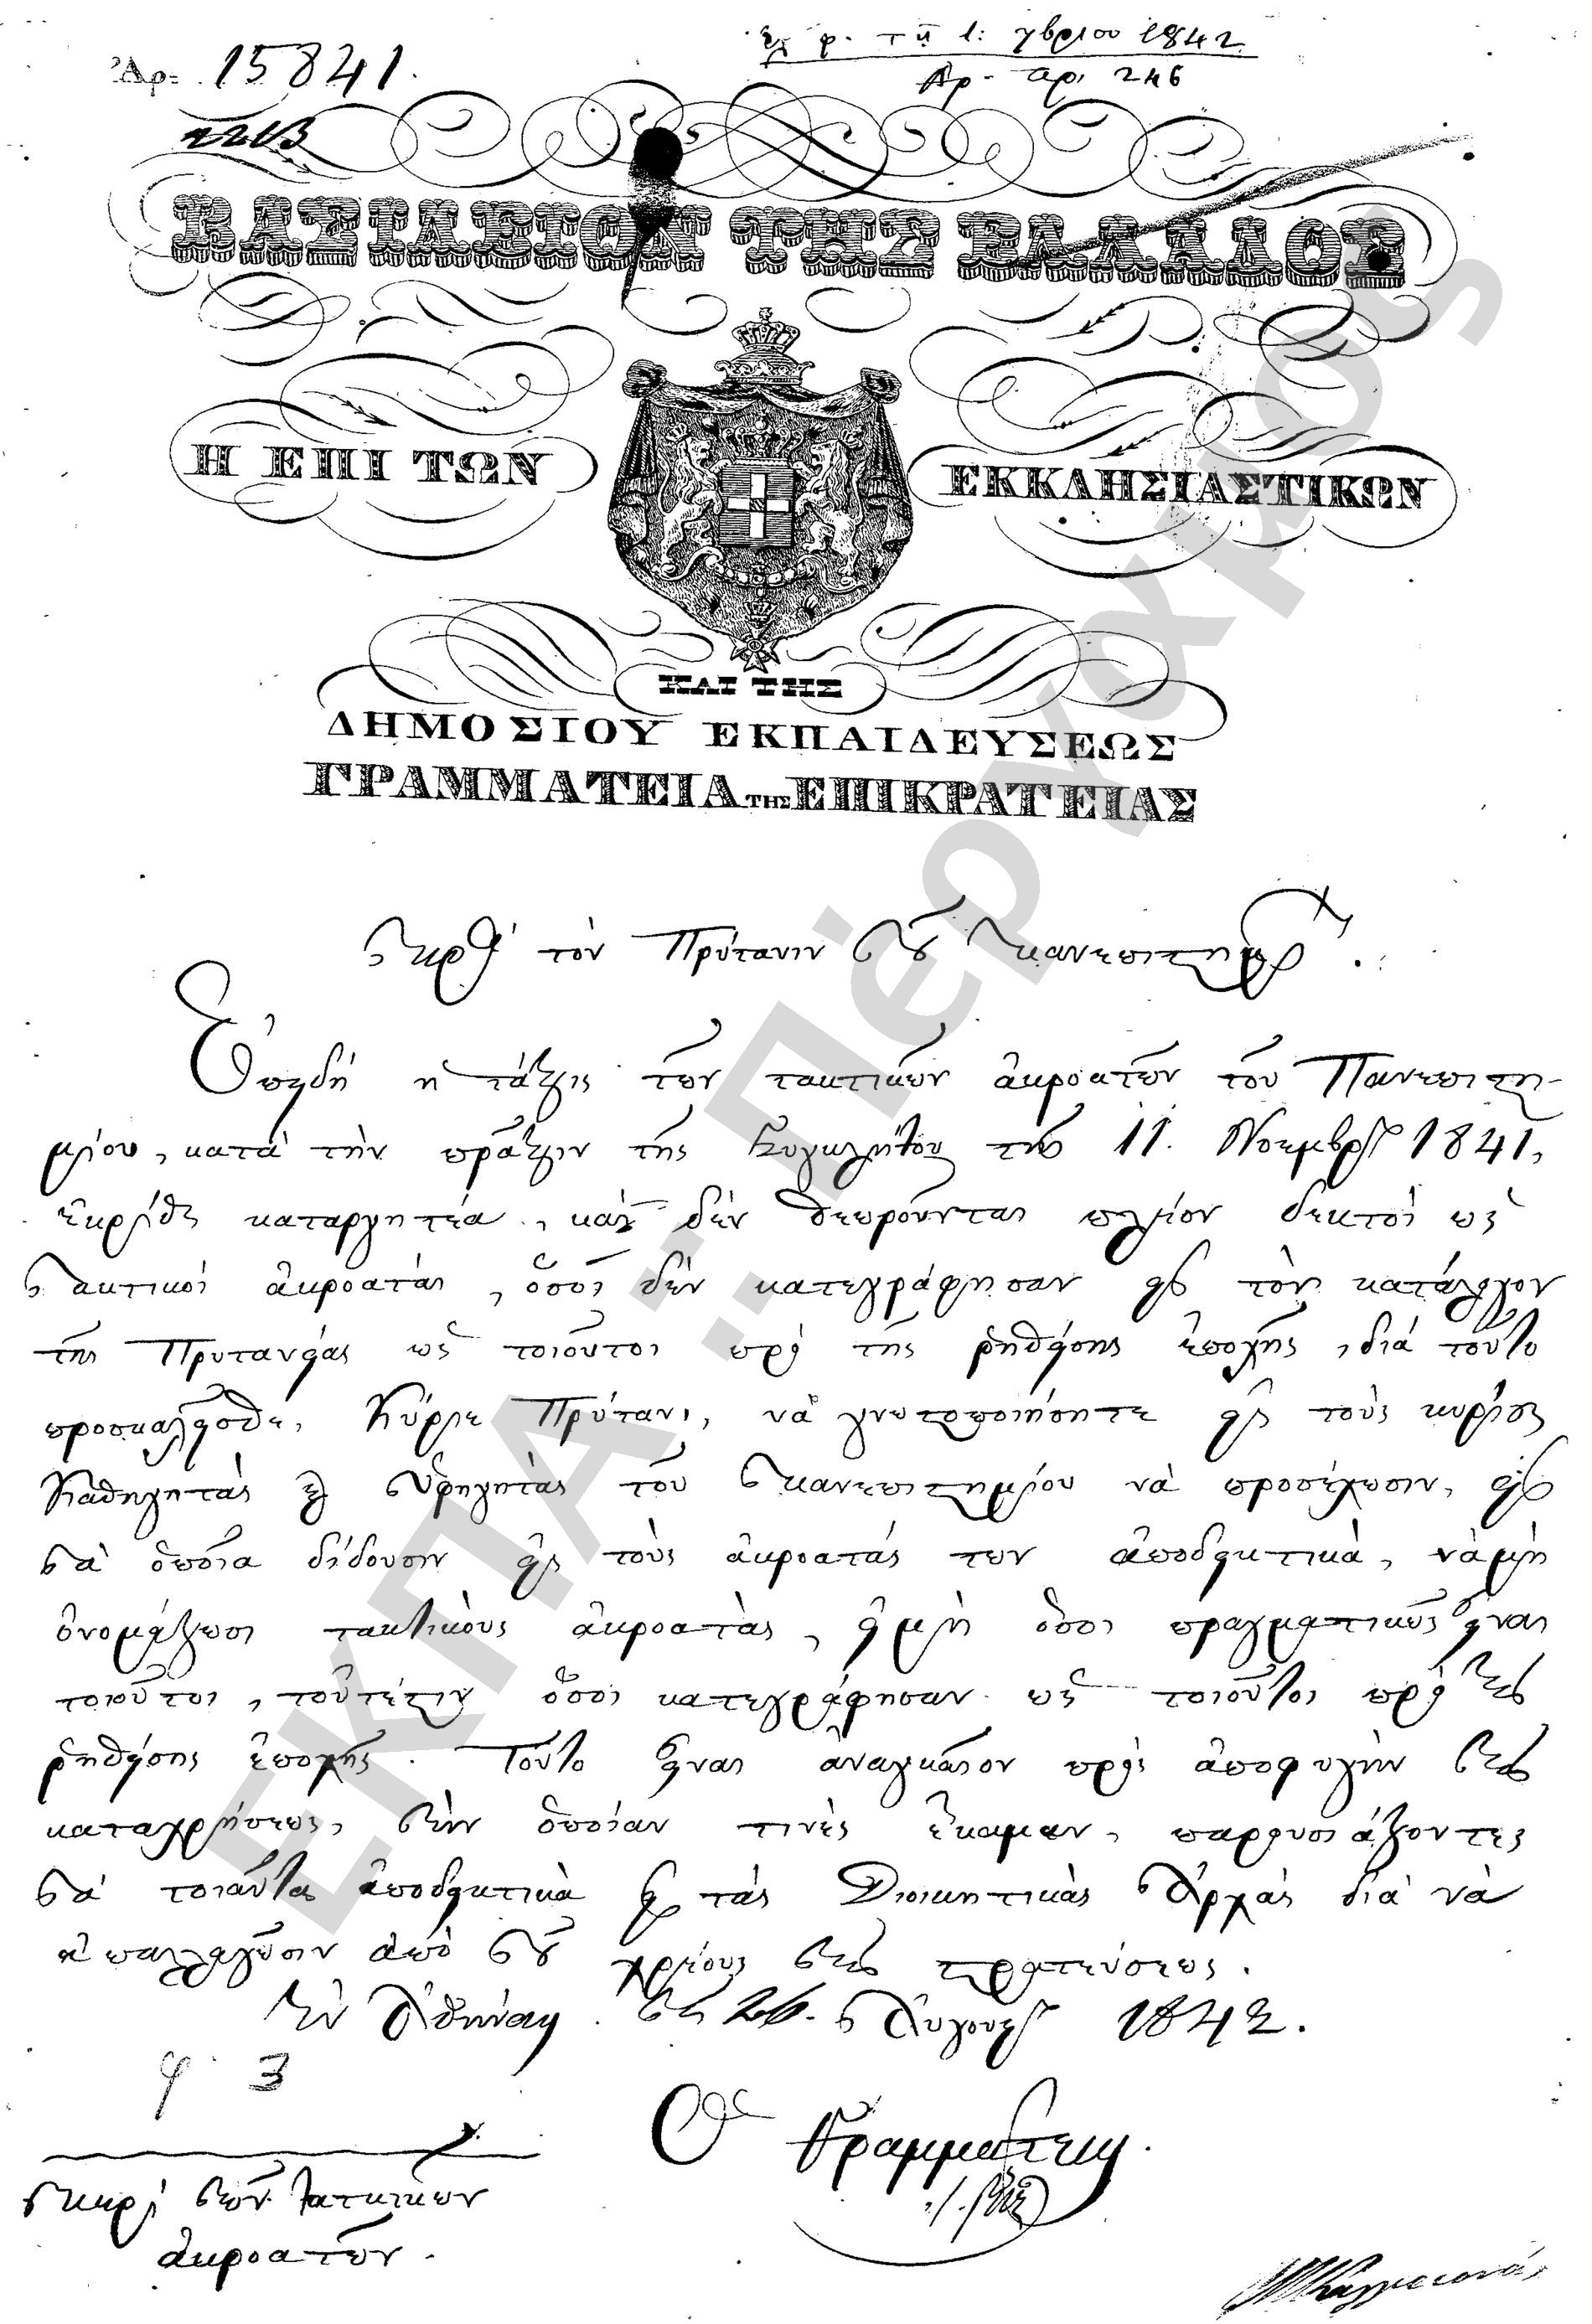 Ἀρ: 15841.
ἐλ. τῇ 1: 7βρίου 1842
Ἀρ. πρ. 246
ΒΑΣΙΛΕΙΟΝ ΤΗΣ ΕΛΛΑΔΟΣ
Η ΕΠΙ ΤΩΝ ΕΚΚΛΗΣΙΑΣΤΙΚΩΝ
ΚΑΙ ΤΗΣ
ΔΗΜΟΣΙΟΥ ΕΚΠΑΙΔΕΥΣΕΩΣ
ΓΡΑΜΜΑΤΕΙΑ ΤΗΣ ΕΠΙΚΡΑΤΕΙΑΣ
Πρὸς τὸν Πρύτανιν τοῦ Πανεπιστημίου.
Ἐπειδὴ ἡ τάξις τῶν τακτικῶν ἀκροατῶν τοῦ Πανεπιστη-
μίου, κατὰ τὴν πρᾶξιν τῆς Συγκλήτου τῆς 11. Νοεμβρίου 1841,
ἐκρίθη καταργητέα, καὶ δὲν θεωροῦνται πλέον δεκτοὶ ὡς
τακτικοὶ ἀκροαταὶ, ὅσοι δὲν κατεγράφησαν εἰς τὸν κατάλογον
τῆς Πρυτανείας ὡς τοιοῦτοι πρὸ τῆς ῥηθείσης ἐποχῆς, διὰ τοῦτο
προσκαλεῖσθε, Κύριε Πρύτανι, νὰ γνωστοποιήσητε εἰς τοὺς κυρίους
Καθηγητὰς καὶ Ὑφηγητὰς τοῦ Πανεπιστημίου νὰ προσέχωσιν, εἰς
τὰ ὁποῖα δίδουσιν εἰς τοὺς ἀκροατάς των ἀποδεικτικὰ, νὰ μὴ
ὀνομάζωσι τακτικοὺς ἀκροατὰς, εἰμὴ ὅσοι πραγματικῶς εἶναι
τοιοῦτοι, τοὐτέστιν ὅσοι κατεγράφησαν ὡς τοιοῦτοι πρὸ τῆς
ῥηθείσης ἐποχῆς. Τοῦτο εἶναι ἀναγκαῖον πρὸς ἀποφυγὴν τῆς
καταχρήσεως, τὴν ὁποίαν τινὲς ἔκαμαν, παρουσιάζοντες
τὰ τοιαῦτα ἀποδεικτικὰ εἰς τὰς Διοικητικὰς Ἀρχὰς διὰ νὰ
ἀπαλλαγῶσιν ἀπὸ τοῦ χρέους τῆς στρατεύσεως.
Ἐν Ἀθήναις τῇ 26. Αὐγούστου 1842.
φ 3
Ὁ Γραμματεὺς.
Περὶ τῶν τακτικῶν
ἀκροατῶν.
ΕΚΠΑ :: Πέργαμος